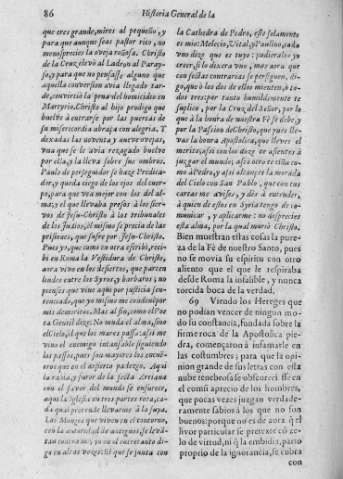 86 Historia General de la
que eres grande, mires al pequeño, y
para que aunque seas pastor rico, no
menosprecies la oveja roñosa. Christo
de la Cruz elevó al Ladron al Paray-
so, y para que no pensasse alguno que
aquella conversion avia llegado tar-
de, convirtió la pena del homicidio en
Martyrio. Christo al hijo prodigo que
buelve à entrarse por las puertas de
su misericordia abraça con alegria. Y
dexadas las noventa y nueve ovejas,
una que se le avia rezagado buelve
por ella, y la lleva sobre sus ombros.
Paulo de perseguidor se haze Predica-
dor, y queda ciego de los ojos del cuer-
po, para que vea mejor con los del al-
ma; y el que llevaba presos à los sier-
vos de Jesu-Christo à los tribunales
de los Judios, èl mismo se precia de las
prisiones, que sufre por Jesu-Christo.
Pues yo, que como en otra escribì, reci-
bì en Roma la Vestidura de Christo,
aora vivo en los desiertos, que parten
lindes entre los Syros, y barbaros; no
pienses que vine aqui por justicia sen-
tenciado, que yo mismo me condenè por
mis demeritos. Mas al fin, como el Po-
eta Gentil dize: No muda el alma, sino
el Cielo, el que los mares passa: assi me
vino el enemigo incansable siguiendo
los passos, pues son mayores los encuen-
tros que en el desierto padezco. Aqui
la rabia, y furor de la secta Arriana
con el favor del mundo se enfurece,
aqui la Iglesia en tres partes rota, ca-
da qual pretende llevarme à la suya.
Los Monges que viven en el contorno,
con la autoridad de antiguos, se levan-
tan contra mi, yo en el entretanto di-
go en altas vozes: Si que se junta con
la Cathedra de Pedro, esse solamente
es mio: Melecio, Vital, y Paulino, cada
uno dize que es tuyo: pudieralo yo
creer, si lo dixera uno, mas aora que
con sectas contrarias se persiguen, di-
go, que ò los dos de ellos mienten, ò to-
dos tres: por tanto humildemente te
suplico, por la Cruz del Señor, por la
que à la honra de nuestra Fè se debe, y
por la Passion de Christo, que pues lle-
vas la honra Apostolica, que lleves el
merito, assi con los doze te assientes à
juzgar el mundo; assi otro te ciña co-
mo à Pedro, y assi alcances la morada
del Cielo con San Pablo, que con tus
cartas me avises, y dès à entender,
à quien de estos en Syria tengo de co-
municar, y aplicarme: no desprecies
esta alma, por la qual muriò Christo.
Bien muestran estas cosas la pure-
za de la Fè de nuestro Santo, pues
no se movia su espiritu con otro
aliento que el que le respiraba
desde Roma la infalible, y nunca
torcida boca de la verdad.
69 Viendo los Hereges que
no podian vencer de ningun mo-
do su constancia, fundada sobre la
firme roca de la Apostolica pie-
dra, començaron à infamarle en
las costumbres; para que la opi-
nion grande de sus letras con esta
nube tenebrosa se obscureciesse en
el comũ aprecio de los hombres,
que pocas vezes juzgan verdade-
ramente sabios à los que no son
buenos: porque no es de aora q̃ el
livor particular se pretexte cõ ze-
lo de virtud, ni q̃ la embidia, parto
proprio de la ignorancia, se cubra
con